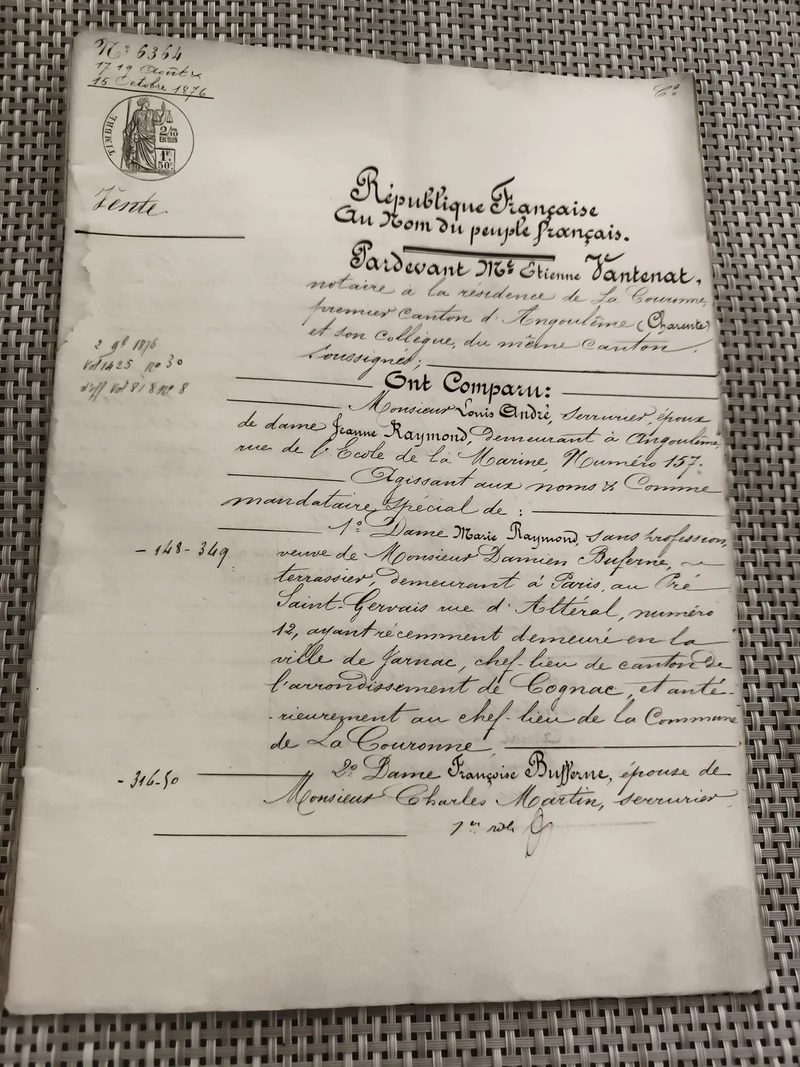 Nº 6364
17 19 Août &
15 Octobre 1876
Cº
TIMBRE
2/10
EN SUS
1F.
50c.
Vente
République Française
Au Nom du peuple français.
Pardevant Me Etienne Vantenat,
notaire à la résidence de La Couronne,
premier canton d'Angoulême (Charente)
et son collègue, du même canton,
soussignés;
2 9bre 1876
Vol 1425 nº 30
Vol 818 nº 8
Ont Comparu:
Monsieur Louis André, serrurier, époux
de dame Jeanne Raymond, demeurant à Angoulême,
rue de l'Ecole de la Marine, Numéro 157.
Agissant aux noms & Comme
mandataire spécial de :
1º Dame Marie Raymond, sans profession,
- 148-349
veuve de Monsieur Damien Buferne,
terrassier, demeurant à Paris, au Pré
Saint-Gervais rue d'Altéral, numéro
12, ayant récemment demeuré en la
ville de Jarnac, chef-lieu de canton de
l'arrondissement de Cognac, et anté-
-rieurement au chef-lieu de la Commune
de La Couronne,
2º Dame Françoise Bufferne, épouse de
- 316-50
Monsieur Charles Martin, serrurier,
1er rôle